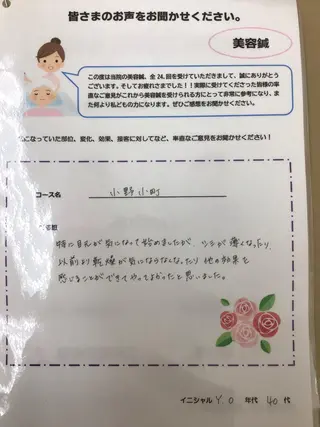 皆さまのお声をお聞かせください。
美容鍼
この度は当院の美容鍼、全24回を受けていただきまして、誠にありがとう
ございます。そしてお疲れさまでした！！実際に受けてくださった皆様の率
直なご意見がこれから美容鍼を受けられる方にとって非常に参考になり、ま
た何より私どもの力になります。ぜひご感想をお聞かせください。
になっていた部位、変化、効果、接客に対してなど、率直なご意見をお聞かせください！
コース名 小野小町
特に目元が気になって始めましたが、シミが薄くなったり
以前より乾燥が気にならなくなったり他の効果を
感じることができてやってよかったと思いました。
イニシャル Y.O 年代 40代